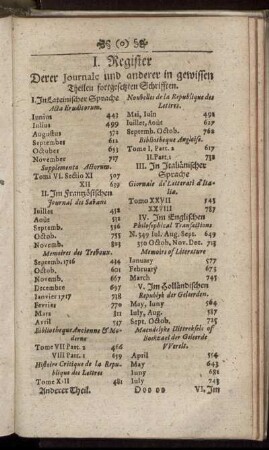 (o)
I. Register
Derer Journale und anderer in gewissen
Theilen fortgesetzten Schrifften.
I. In Lateinischer Sprache
Acta Eruditorum.
Iunius 442
Iulius 499
Augustus 572
September 602
October 651
November 717
Supplementa Actorum.
Tomi VI. Sectio XI 507
XII 659
II. Im Frantzösischen
Journal des Sçavans
Iuillet 432
Août 521
Septemb. 586
Octob. 755
Novemb.
Memoires des Trevoux.
Septemb. 1716 434
Octob. 663
Novemb. 667
Decembre 697
Ianvier 1717 718
Fevrier 770
Mars 311
Avril 517
Bibliotheque Ancienne & Moderne
Tome VII Part. 2 466
VIII Part. 1 659
Histoire Critique de la Republique des Lettres
Tome XIII 481
Anderer Theil.
Nouvelles de la Republique des
Lettres.
Maj, Iuin 498
Iuillet, Août 657
Septemb. Octob. 762
Bibliotheque Angloise.
Tome I. Part. 2 617
II. Part. 1 732
III. In Italiänischer
Sprache
Giornale de' Letterati d'Italia.
Tomo XXVII 545
XXVIII 787
IV. Im Englischen
Philosophical Transactions
M. 349 Iul. Aug. Sept. 649
350 Octob. Nov. Dec. 713
Memoirs of Literature
Ianuary 577
February 673
March 745
V. Im Holländischen
Republyk der Geleerden.
May, Iuny 564
July, Aug. 587
Sept. Octob. 725
Maendelyke Uittreksels of
Boekzael der Geleerde
VVerelt.
April 554
May 662
Iuny 691
July 743
Ooooo
VI. Im